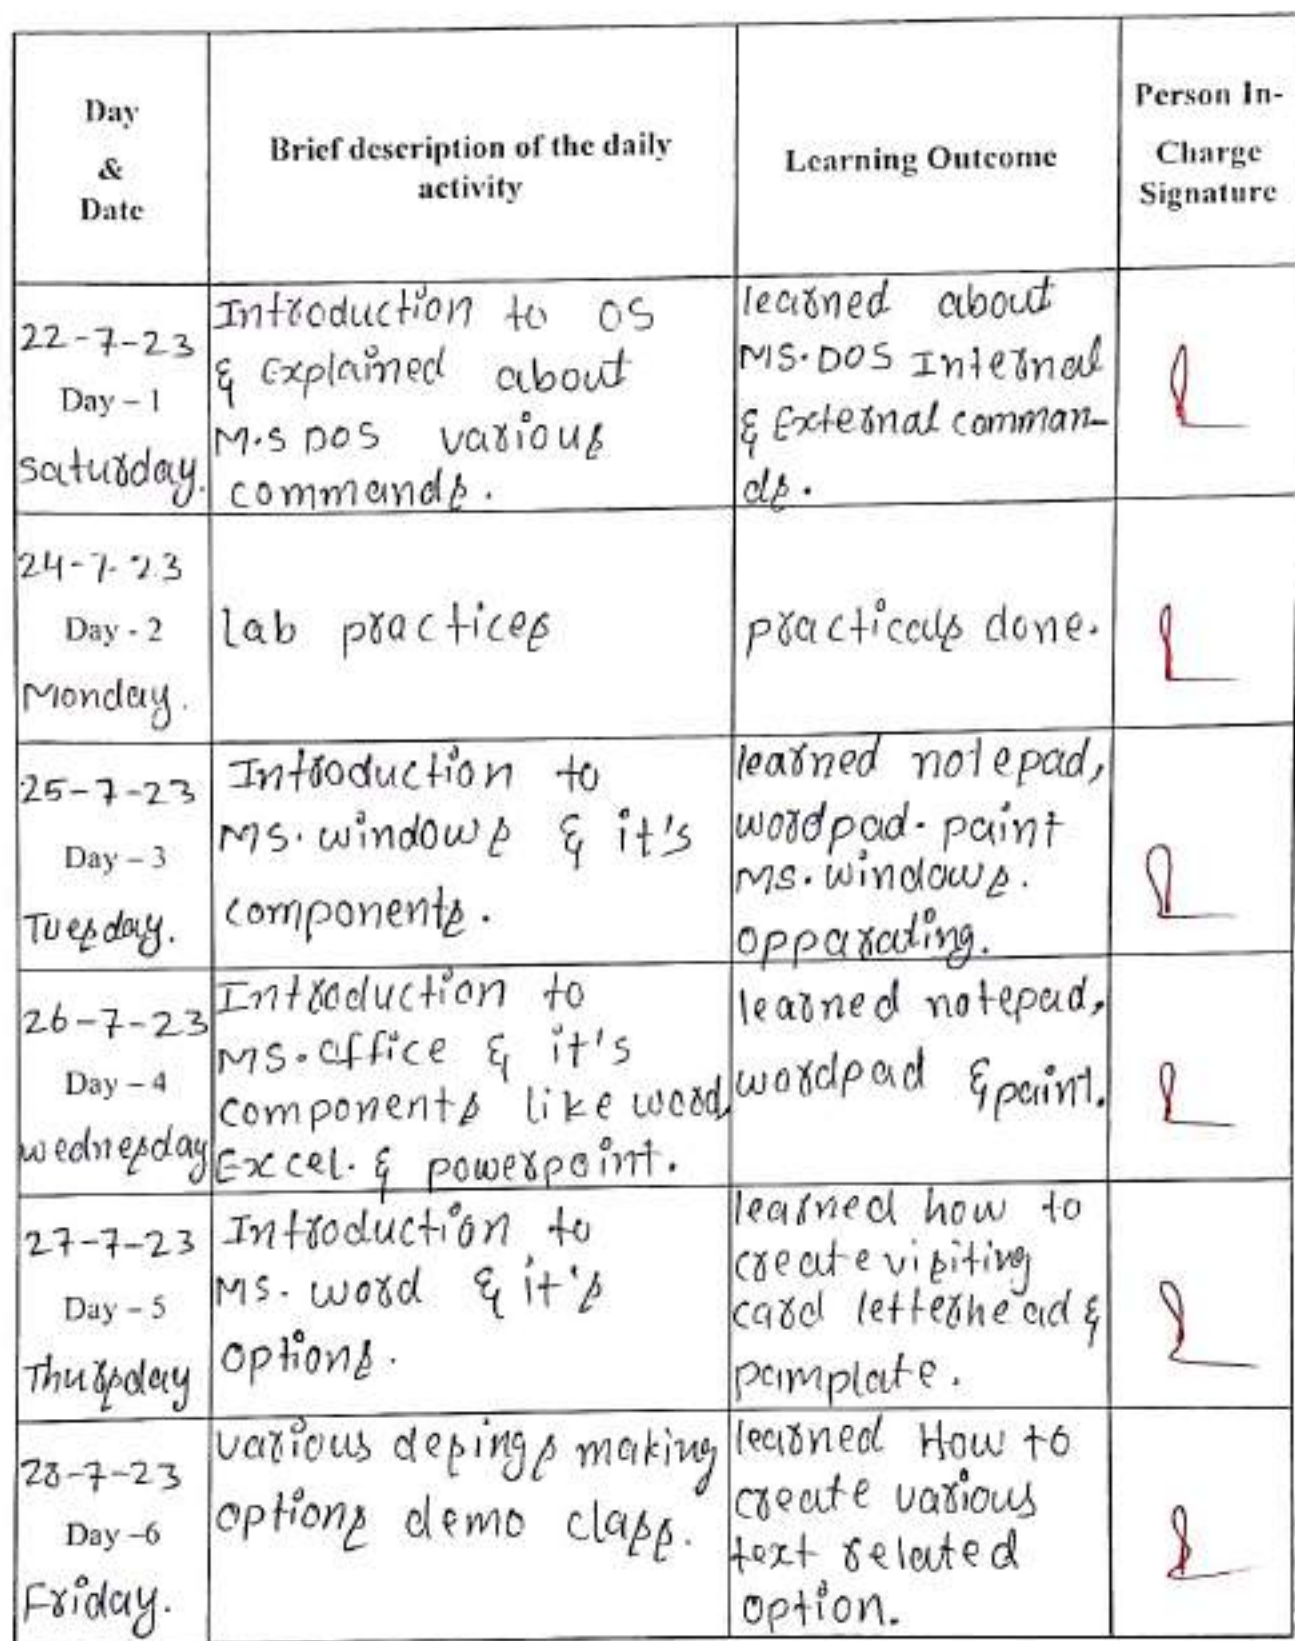 Day
&
Date
Brief description of the daily
activity
Learning Outcome
Person In-
Charge
Signature
22-7-23
Day – 1
Saturday.
Introduction to OS
& Explained about
M.S DOS various
commands.
learned about
MS.DOS Internal
& External comman-
ds.
24-7-23
Day - 2
Monday.
lab practices
practicals done.
25-7-23
Day – 3
Tuesday.
Introduction to
MS. windows & it's
components.
learned notepad,
wordpad. paint
MS. windows.
opparating.
26-7-23
Day – 4
wednesday
Introduction to
MS. office & it's
components like word,
Excel. & powerpoint.
learned notepad,
wordpad & paint.
27-7-23
Day – 5
Thursday
Introduction to
MS. word & it's
options.
learned how to
create visiting
card letterhead &
pamplate.
28-7-23
Day –6
Friday.
various desings making
options demo class.
learned How to
create various
text related
option.